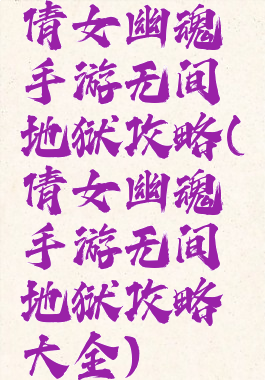 倩女幽魂
手游无间
地狱攻略(
倩女幽魂
手游无间
地狱攻略
大全)